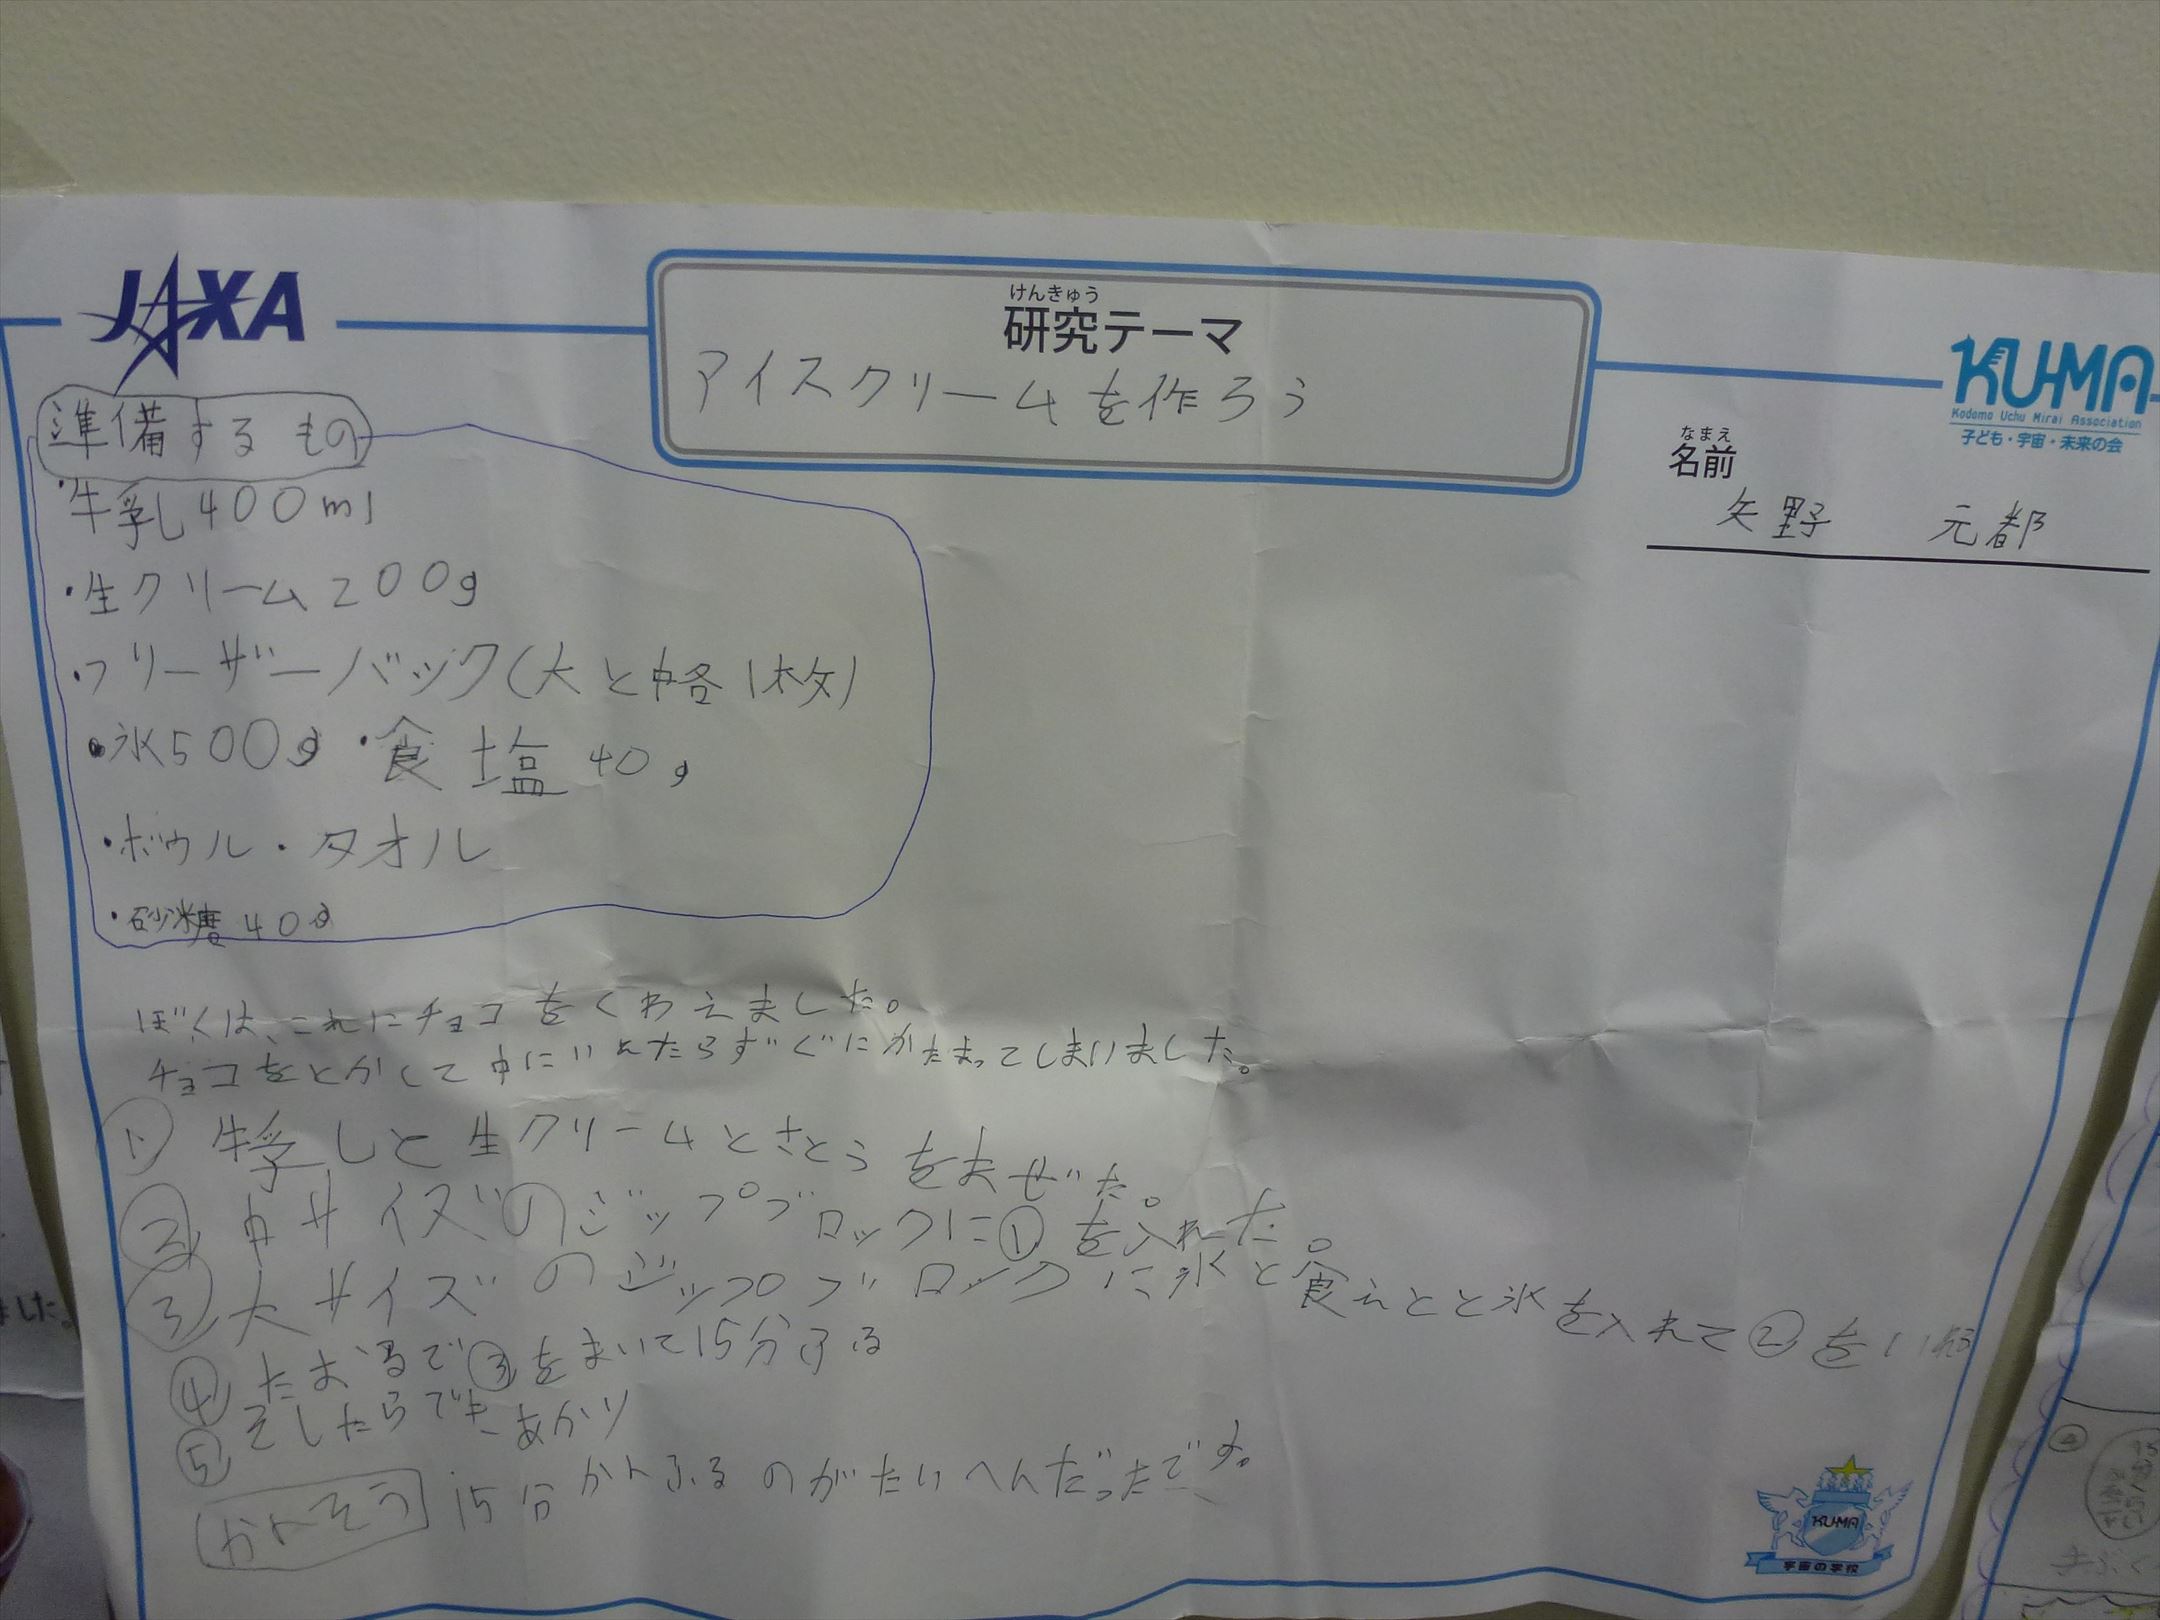 JAXA
けんきゅう
研究テーマ
アイスクリームを作ろう
KU-MA
Kodomo Uchu Mirai Association
子ども・宇宙・未来の会
なまえ
名前
矢野 元都
準備するもの
・牛乳400ml
・生クリーム200g
・フリーザーバック(大と中各1枚)
・氷500g ・食塩40g
・ボウル・タオル
・砂糖40g
ぼくは、これにチョコをくわえました。
チョコをとかして中にいれたらすぐにかたまってしまいました。
① 牛乳と生クリームとさとうをまぜた。
② 中サイズのジップブロックに①を入れた。
③ 大サイズのジップブロックに氷と食えんとと氷を入れて②をいれる
④ たおるで③をまいて15分ふる
⑤ そしたらできあがり
かんそう 15分かんふるのがたいへんだったです。
KU-MA
宇宙の学校
ました。